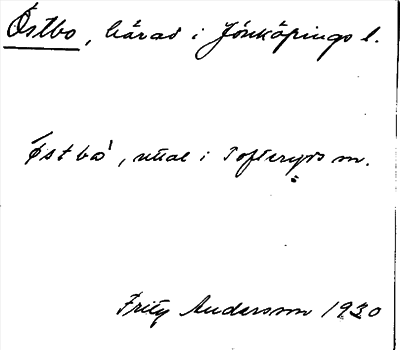 Östbo, härad i Jönköpings l.
Østbo, uttal i Tofteryds sn.
Fritz Andersson 1930